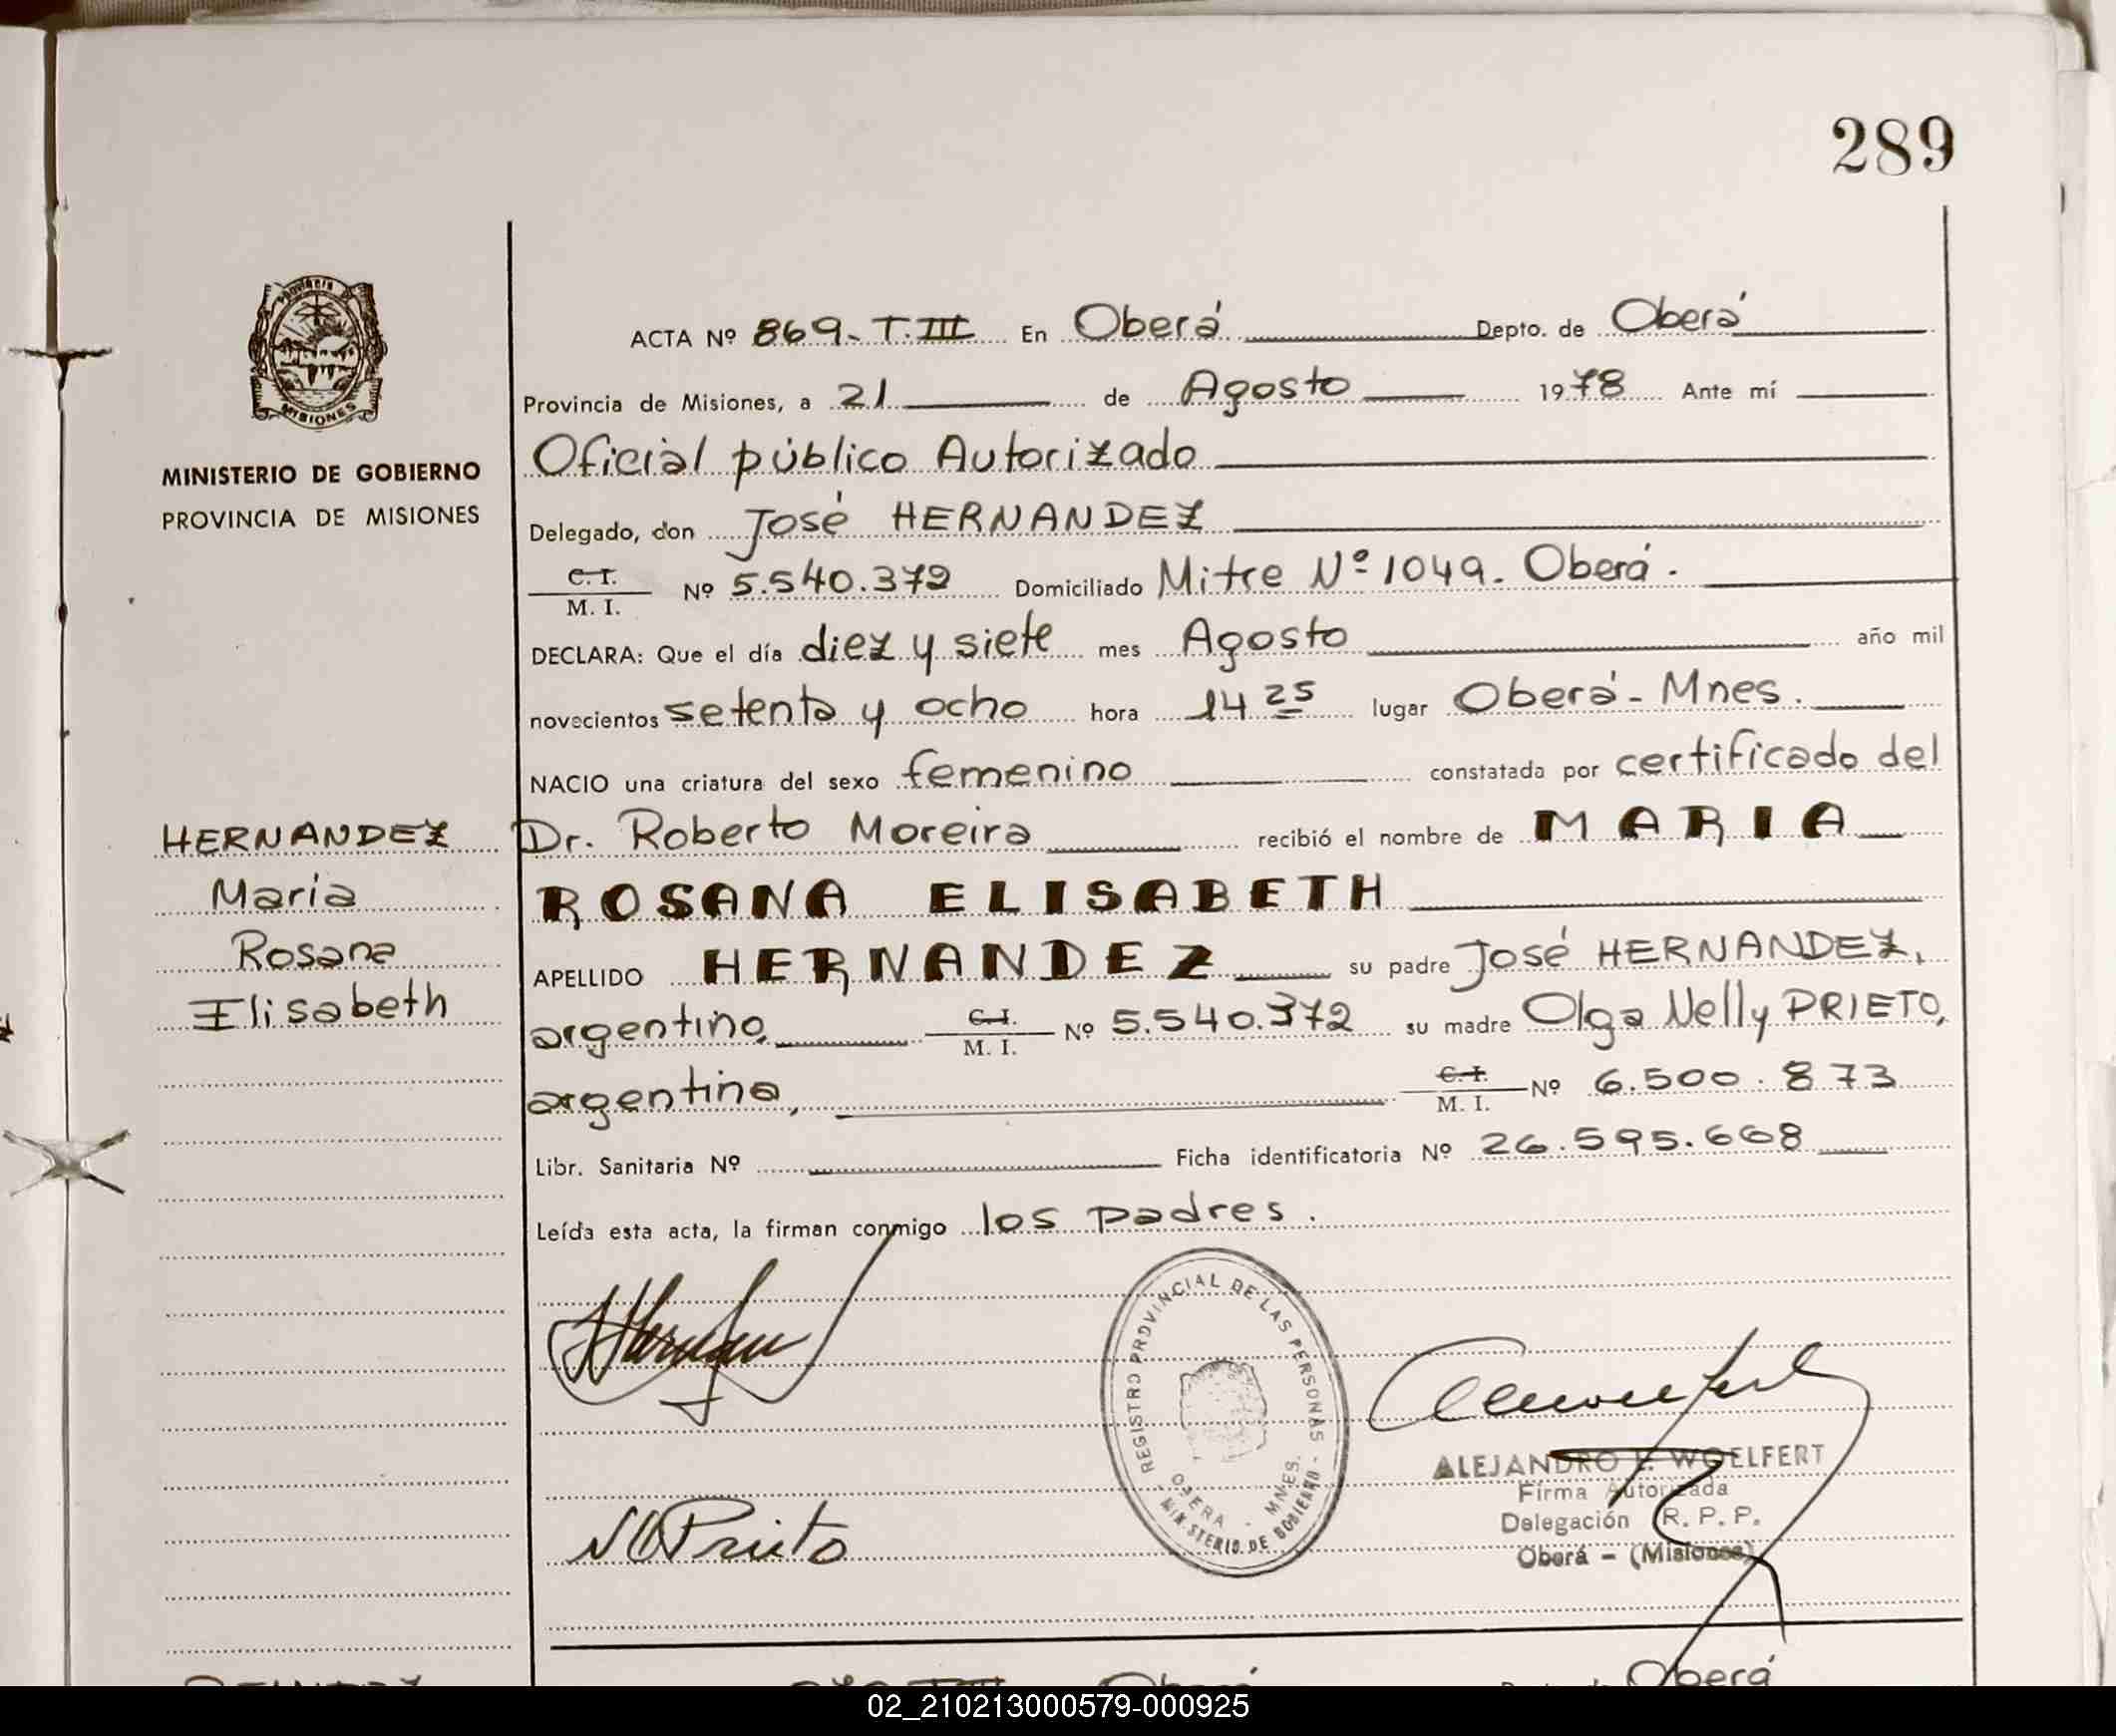 289
Provincia de
MISIONES
MINISTERIO DE GOBIERNO
PROVINCIA DE MISIONES
HERNANDEZ
Maria
Rosana
Elisabeth
ACTA Nº 869-T.III En Oberá Depto. de Oberá
Provincia de Misiones, a 21 de Agosto 1978 Ante mí
Oficial público Autorizado
Delegado, don José HERNANDEZ
C. I.
M. I. Nº 5.540.372 Domiciliado Mitre Nº 1049. Oberá.
DECLARA: Que el día diez y siete mes Agosto año mil
novecientos setenta y ocho hora 14 25 lugar Oberá - Mnes.
NACIO una criatura del sexo femenino constatada por certificado del
Dr. Roberto Moreira recibió el nombre de MARIA
ROSANA ELISABETH
APELLIDO HERNANDEZ su padre José HERNANDEZ,
argentino, C. I. M. I. Nº 5.540.372 su madre Olga Nelly PRIETO,
argentina, C. I. M. I. Nº 6.500.873
Libr. Sanitaria Nº Ficha identificatoria Nº 26.595.668
Leída esta acta, la firman conmigo los padres.
REGISTRO PROVINCIAL DE LAS PERSONAS
OBERA - MNES.
MINISTERIO DE GOBIERNO
NOPrieto
ALEJANDRO E. WOELFERT
Firma Autorizada
Delegación R. P. P.
Oberá - (Misiones)
Oberá
02_210213000579-000925